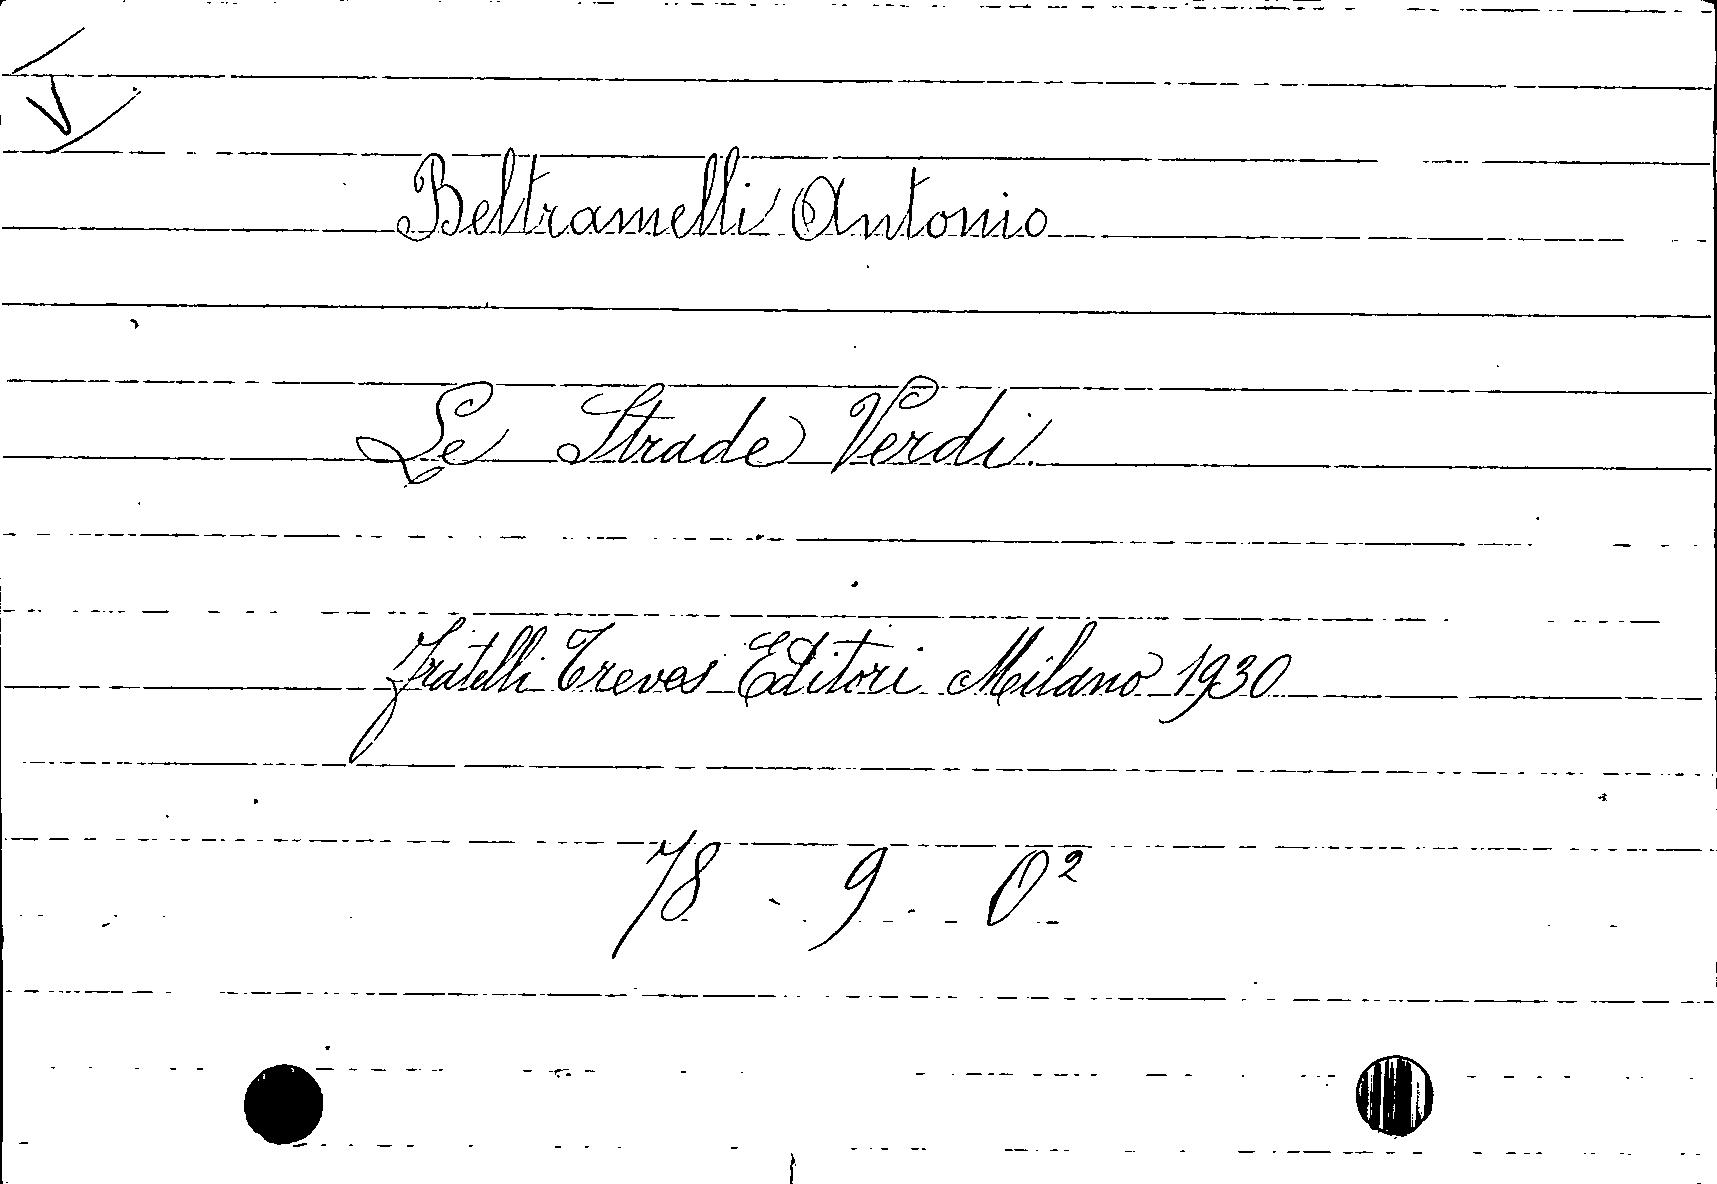 V
Beltramelli Antonio
Le Strade Verdi
Fratelli Treves Editori Milano 1930
78 - 9 - O²